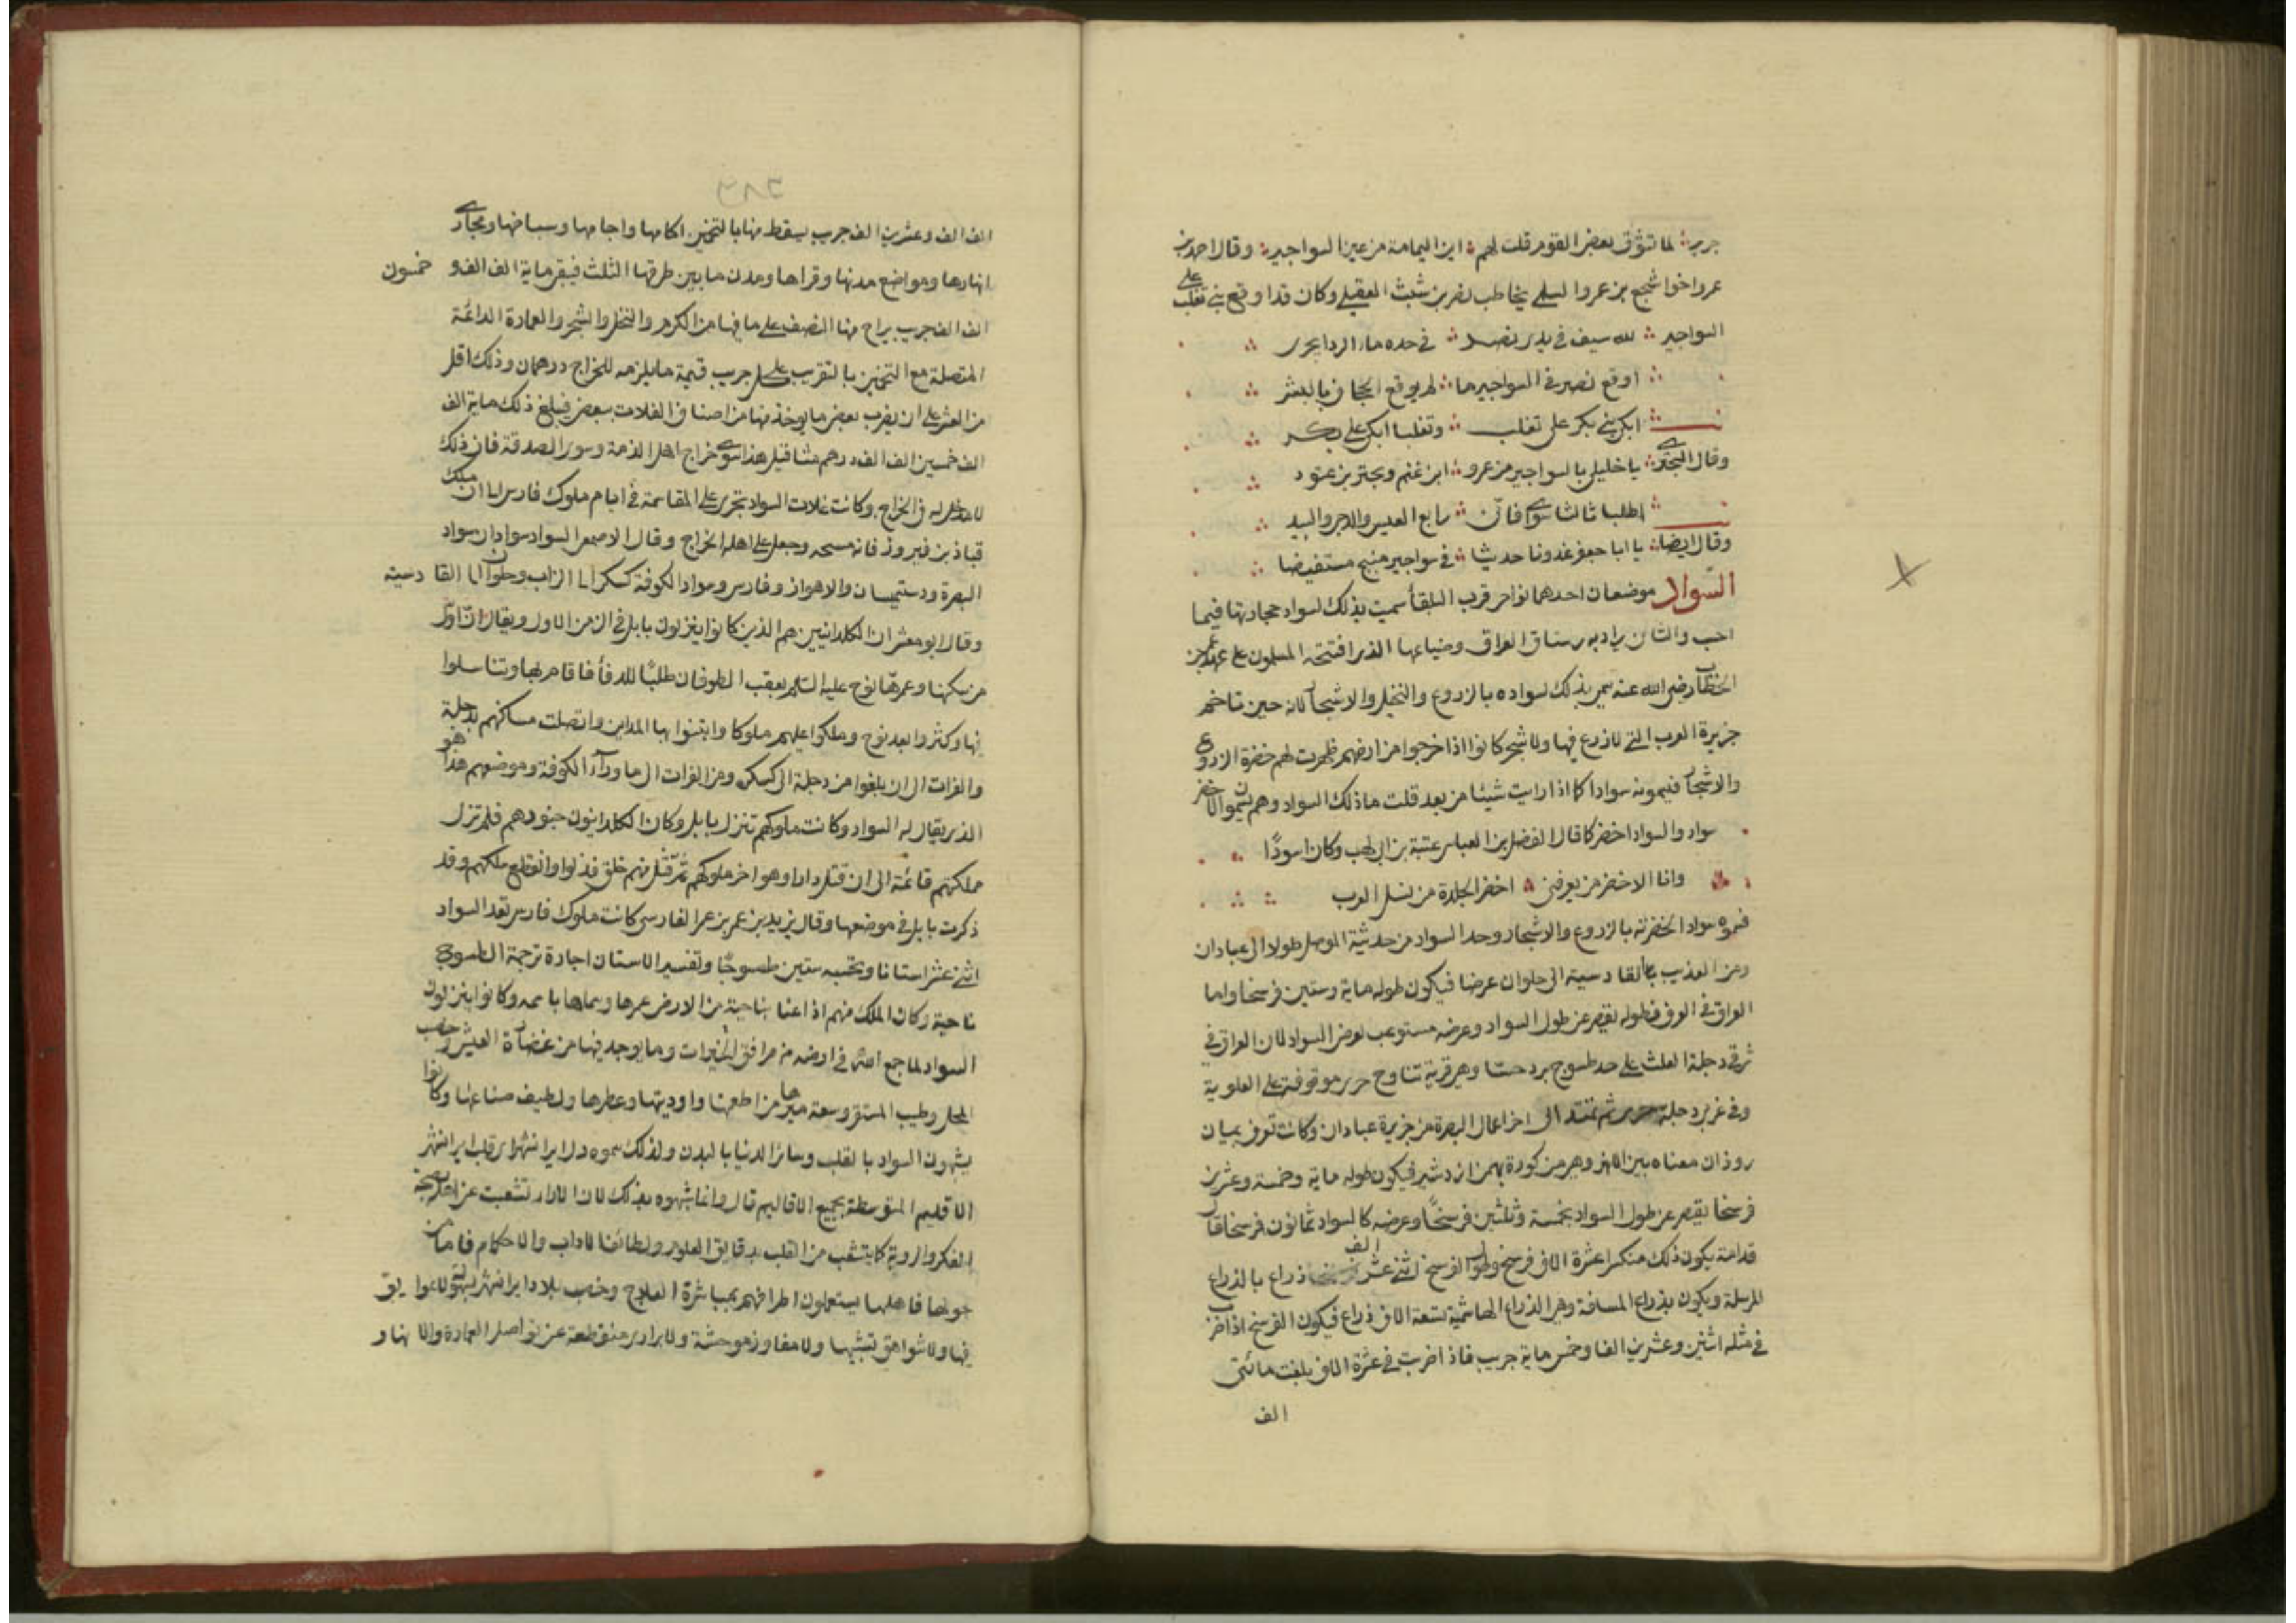 جرير لما تشوق بعض القوم قلت لهم اين اليمامة من عين السواجير وقال احمد بن
عمرو اخو اشجع بن عمرو السلمي يخاطب نصر بن شبث العقيلي وكان قد اوقع ببني تغلب على
السواجير لله سيف في يدي نصر في حده ماء الردا يجري
اوقع نصر في السواجير ما لم يوقع الجحاف بالبشر
ابكي بني بكر على تغلب وتغلبا ابكي على بكر
وقال البحتري يا خليلي بالسواجير من عمرو ابن غنم وبحتر بن عتود
اطلبا ثالثا سوائي فاني رابع العيس والدجى والبيد
وقال ايضا يا ابا جعفر غدونا حديثا في سواجير منبج مستفيضا
السواد موضعان احدهما نواحي قرب البلقأ سميت بذلك لسواد حجارتها فيما
احسب والثاني يراد به رستاق العراق وضياعها الذي افتتحه المسلمون على عهد عمر بن
الخطاب رضي الله عنه سمي بذلك لسواده بالزروع والنخيل والاشجار لانه حين تاخم
جزيرة العرب التي لا زرع فيها ولا شجر كانوا اذا خرجوا من ارضهم ظهرت لهم خضرة الزروع
والاشجار فيسمونه سوادا كما اذا رايت شيئا من بعد قلت ما ذلك السواد وهم يسمون الاخضر
سواد والسواد اخضر كما قال الفضل بن العباس عتبة بن ابي لهب وكان اسودًا
وانا الاخضر من يعرفني اخضر الجلدة من نسل العرب
فسموه سوادا لخضرته بالزروع والاشجار وحد السواد من حديثة الموصل طولا الى عبادان
ومن العذيب بالقادسية الى حلوان عرضا فيكون طوله ماية وستين فرسخا واما
العراق في العرف فطوله يقصر عن طول السواد وعرضه مستوعب لعرض السواد لان العراق في
شرقي دجلة العلث على حد طسوج بزرجسا وهي قرية تناوح حربى موقوفة على العلوية
وفي غربي دجلة حربى ثم تمتد الى اخر اعمال البصرة من جزيرة عبادان وكانت تعرف بميان
روذان معناه بين الانهر وهي من كورة بهمن اردشير فيكون طوله ماية وخمسة وعشرين
فرسخا يقصر عن طول السواد بخمسة وثلثين فرسخًا وعرضه كالسواد ثمانون فرسخا قال
قدامة يكون ذلك منكسرا عشرة الاف فرسخ وطول الفرسخ اثني عشر الف ذراع بالذراع
المرسلة ويكون بذراع المسافة وهي الذراع الهاشمية تسعة الاف ذراع فيكون الفرسخ اذا ضرب
في مثله اثنين وعشرين الفا وخمس ماية جريب فاذا ضربت في عشرة الاف بلغت مائتي
الف
الف الف وعشرين الف جريب يسقط منها بالتخمين اكامها واجامها وسباخها ومجاري
انهارها ومواضع مدنها وقراها ومدن ما بين طرقها الثلث فيبقى ماية الف الف و خمسون
الف الف جريب يراح منها النصف على ما فيها من الكرم والنخل والشجر والعمارة الدائمة
المتصلة مع التخمين بالتقريب على كل جريب قيمة ما يلزمه للخراج درهمان وذلك اقل
من العشر على ان يضرب بعض ما يوخذ منها من اصناف الغلات ببعض فيبلغ ذلك ماية الف
الف خمسين الف الف درهم مثاقيل هذا سوى خراج اهل الذمة وسوى الصدقة فان ذلك
لا مدخل له في الخراج وكانت غلات السواد تجري على المقاسمة في ايام ملوك فارس الى ان ملك
قباذ بن فيروز فانه مسحه وجعل على اهله الخراج وقال الاصمعي السواد سوادان سواد
البصرة ودستميسان والاهواز وفارس وسواد الكوفة كسكر الى الزاب وحلوان الى القادسية
وقال ابو معشر ان الكلدانيين هم الذين كانوا ينزلون بابل في الزمن الاول ويقال ان اول
من سكنها وعمرها نوح عليه السلم بعقب الطوفان طلبًا للدفأ فاقام بها وتناسلوا
بها وكثروا بعد نوح وملكوا عليهم ملوكا وابتنوا بها المداين واتصلت مساكنهم بدجلة
والفرات الى ان بلغوا من دجلة الى كسكر ومن الفرات الى ما ورآء الكوفة وموضعهم هذا هو
الذي يقال له السواد وكانت ملوكهم تنزل بابل وكان الكلدانيون جنودهم فلم تزل
مملكتهم قائمة الى ان قتل دارا وهو اخر ملوكهم ثم قتل منهم خلق فذلوا وانقطع ملكهم وقد
ذكرت بابل في موضعها وقال يزيد بن عمر بن عمر الفارسي كانت ملوك فارس تعد السواد
اثني عشر استانا وتحسبه ستين طسوجًا وتفسير الاستان اجارة ترجمة الطسوج
ناحية وكان الملك منهم اذا اعنا بناحية من الارض عمرها وسماها باسمه وكانوا ينزلون
السواد لما جمع الله في ارضه من مرافق الخيرات وما يوجد فيها من غضارة العيش وخصب
المحل وطيب المستقر وسعة ميرها من اطعمها واوديتها وعطرها ولطيف صناعاتها وكانوا
يشبهون السواد بالقلب وسائر الدنيا بالبدن ولذلك سموه دل ايرانشهر اي قلب ايرانشهر
الاقليم المتوسطة بجميع الاقاليم قال وانما شبهوه بذلك لان الارا تشعبت عن اهله بصحة
الفكر والروية كما يتشعب من القلب بدقايق العلوم ولطائف الاداب والاحكام فاما من
حولها فاهلها يستعملون اطرافهم بمباشرة العلاج وخصب بلاد ايرانشهر بسهولة لا عوايق
فيها ولا شواهق تشينها ولا مفاوز موحشة ولا براري منقطعة عن تواصل العمارة والانهار